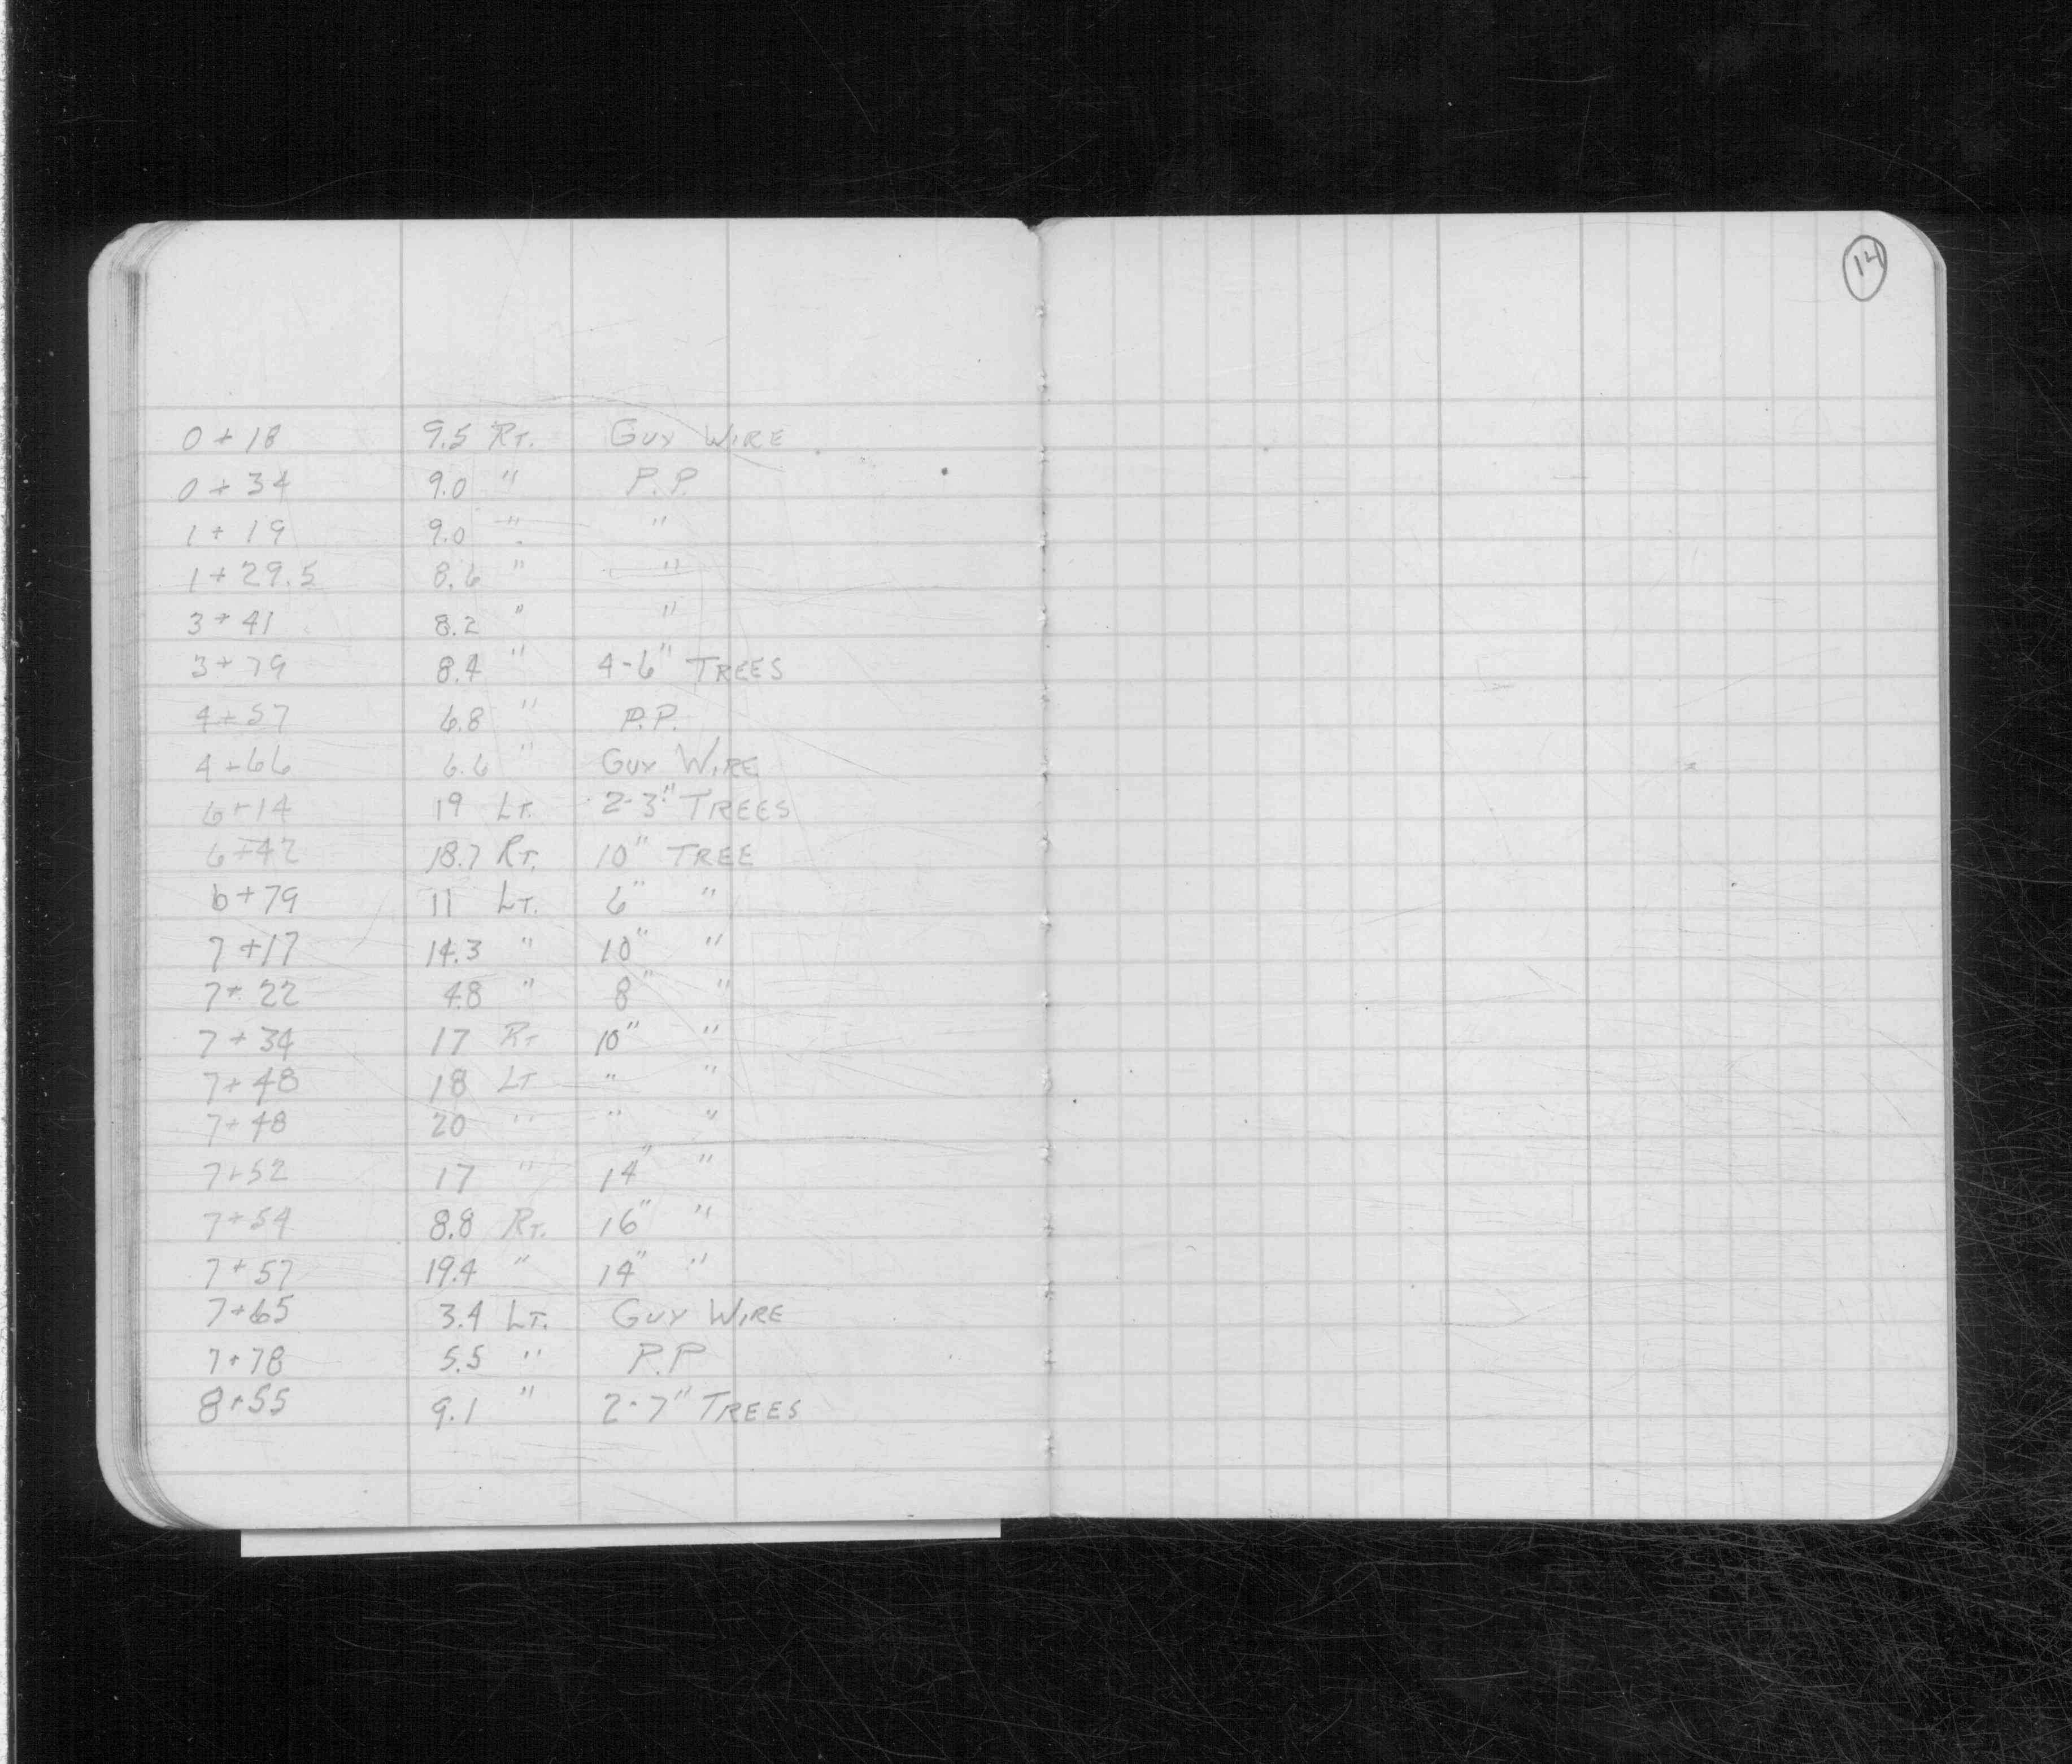 14
0+18 9.5 RT. GUY WIRE
0+34 9.0 " P.P.
1+19 9.0 " "
1+29.5 8.6 " "
3+41 8.2 " "
3+79 8.4 " 4-6" TREES
4+57 6.8 " P.P.
4+66 6.6 " GUY WIRE
6+14 19 LT. 2-3" TREES
6+42 18.7 RT. 10" TREE
6+79 11 LT. 6" "
7+17 14.3 " 10" "
7+22 48 " 8" "
7+34 17 RT 10" "
7+48 18 LT " "
7+48 20 " " "
7+52 17 " 14" "
7+54 8.8 RT. 16" "
7+57 19.4 " 14" "
7+65 3.4 LT. GUY WIRE
7+78 5.5 " P.P
8+55 9.1 " 2-7" TREES